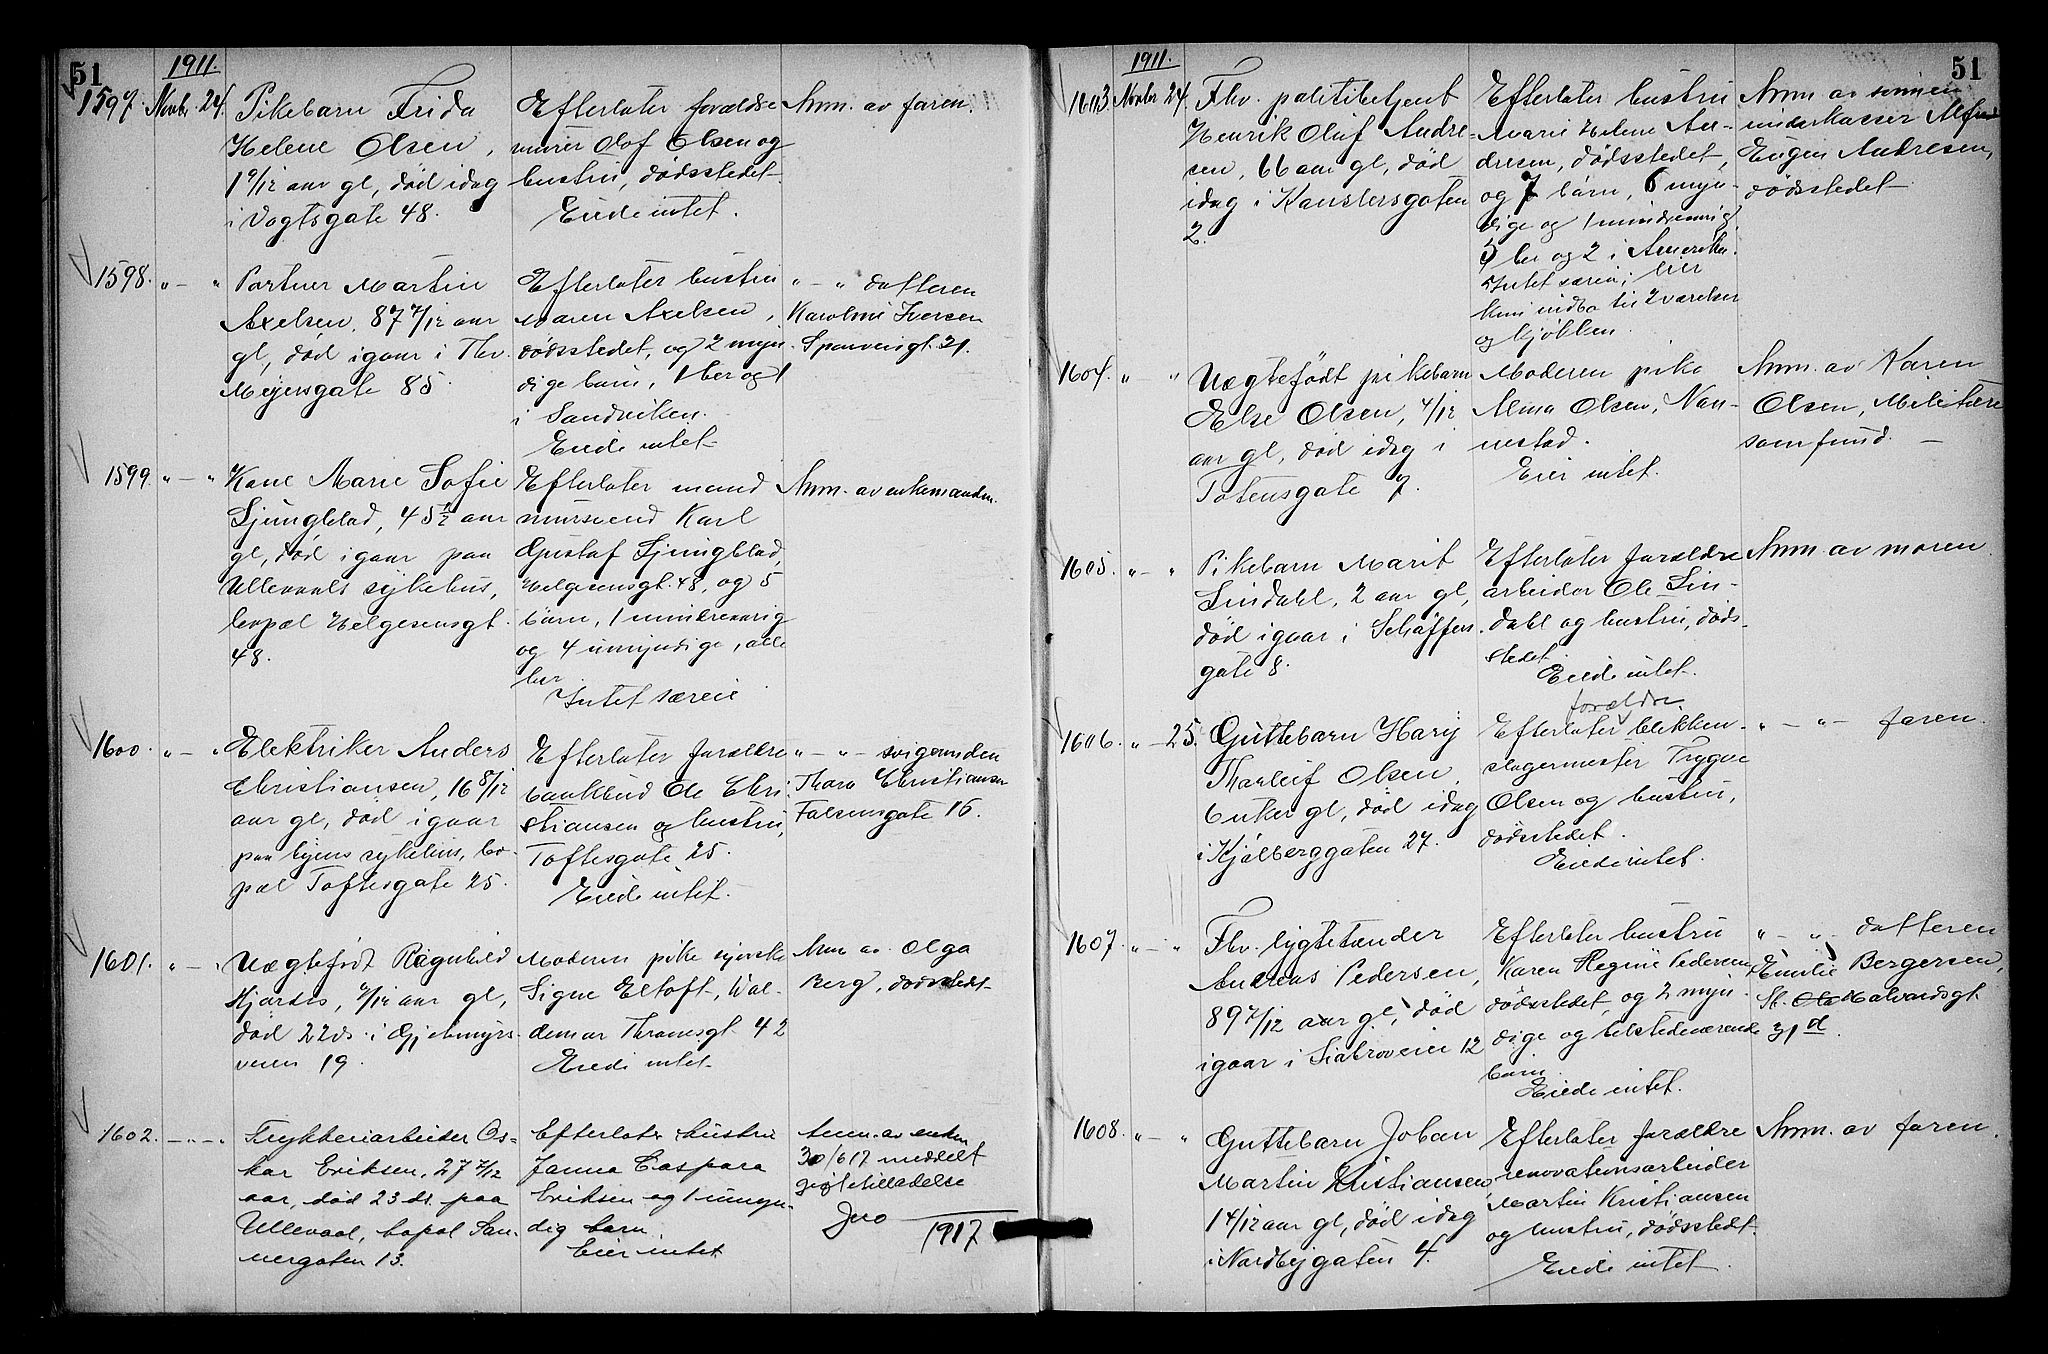 51
1911.
1597. Novbr. 24. Pikebarn Frida
Helene Olsen,
1 9/12 aar gl, død idag
i Vogtsgate 48.
Efterlater forældre
murer Olof Olsen og
hustru, dødsstedet.
Eiede intet.
Anm. av faren.
1598. " — " Portner Martin
Axelsen, 87 7/12 aar
gl, død igaar i Thv.
Meyersgate 85.
Efterlater hustru
Maren Axelsen,
dødsstedet, og 2 myn-
dige barn, 1 her og 1
i Sandviken.
Eiede intet.
" — " datteren
Karoline Iversen
Sporveisgt. 21.
1599. " — " Kone Marie Sofie
Ljungblad, 45 1/2 aar
gl, død igaar paa
Ullevaals sykehus,
bopæl Helgesensgt.
48.
Efterlater mand
mursvend Karl
Gustaf Ljungblad,
Helgesensgt. 48, og 5
barn, 1 mindreaarig
og 4 umyndige, alle
her
Intet særeie
Anm. av enkemanden.
1600. " — " Elektriker Anders
Christiansen, 16 8/12
aar gl, død igaar
paa byens sykehus, bo-
pæl Toftesgate 25.
Efterlater forældre
bankbud Ole Chri-
stiansen og hustru,
Toftesgate 25.
Eiede intet.
" — " — svigerinden
Thora Christiansen
Falsensgate 16.
1601. " — " Uægtefødt Ragnhild
Hjørdis, 7/12 aar gl,
død 22 ds. i Gjetemyrs-
veien 19.
Moderen pike syerske
Signe Eltoft, Wal-
demar Thranesgt. 42
Eiede intet.
Anm. av Olga
Berg, dødsstedet
1602. — " — " Trykkeriarbeider Os-
kar Eriksen, 27 7/12
aar, død 23 ds. paa
Ullevaal, bopæl San-
nergaten 13.
Efterlater hustru
Janna Caspara
Eriksen og 1 umyn-
dig barn.
Eier intet
Anm. av enken
30/6 17 meddelt
giftetilladelse
1917
51
1911.
1603. Novbr 24. Fhv. politibetjent
Henrik Oluf Andre-
sen, 66 aar gl, død
idag i Kanslersgaten
2.
Efterlater hustru
Marie Helene An-
dresen, dødsstedet,
og 7 barn, 6 myn-
dige og 1 mindreaarig,
5 her og 2 i Amerika.
Intet særeie; eier
kun indbo til 2 værelser
og kjøkken.
Anm. av sønnen
underkasser Alfred
Eugen Andresen,
dødsstedet
1604. " — " Uægtefødt pikebarn
Else Olsen, 4/12
aar gl, død idag i
Totensgate 7.
Moderen pike
Alma Olsen, Nan-
nestad.
Eier intet.
Anm. av Karen
Olsen, Militære
samfund. —
1605. " — " Pikebarn Marit
Lindahl, 2 aar gl,
død igaar i Schäffers-
gate 8.
Efterlater forældre
arbeider Ole Lin-
dahl og hustru, døds-
stedet
Eiede intet.
Anm. av moren.
1606. " — 25. Guttebarn Harry
Thorleif Olsen,
6 uker gl, død idag
i Kjølberggaten 27.
forældre
Efterlater blikken-
slagermester Trygve
Olsen og hustru,
dødsstedet.
Eiede intet.
" — " — faren.
1607. " — " Fhv. lygtetænder
Andreas Pedersen,
89 7/12 aar gl, død
igaar i Siebroveien 12
Efterlater hustru
Karen Regine Pedersen,
dødsstedet, og 2 myn-
dige og tilstedeværende
barn.
Eiede intet.
" — " — datteren
Emilie Bergersen,
St. Halvardsgt.
31 d.
1608. " — " Guttebarn Johan
Martin Kristiansen,
1 4/12 aar gl, død idag
i Nordbygaten 4.
Efterlater forældre
renovationsarbeider
Martin Kristiansen
og hustru, dødsstedet.
Eiede intet.
Anm. av faren.